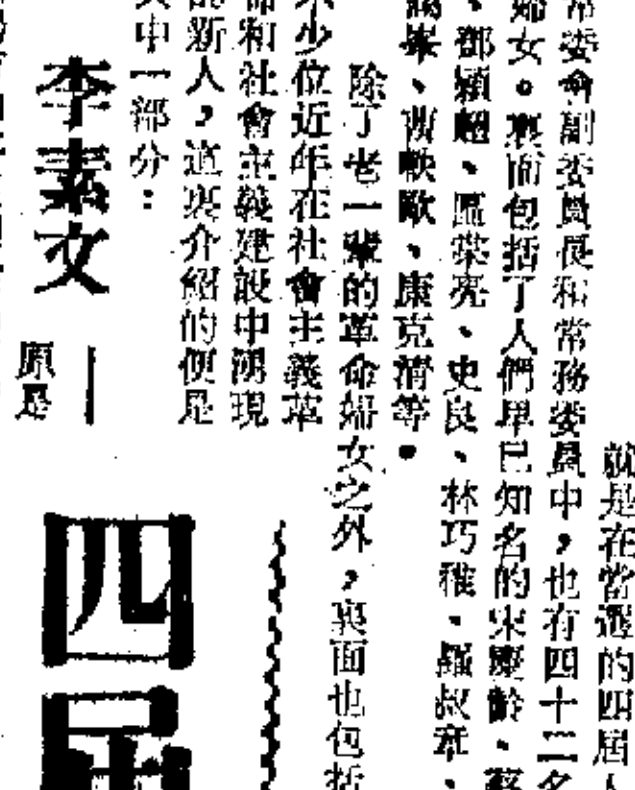 就是在當選的四屆人
常委會副委員長和常務委員中，也有四十二名
婦女。裏面包括了人們早已知名的宋慶齡、蔡
、鄧穎超、區棠亮、史良、林巧稚、羅叔章、
歐、康克清等。
除了老一輩的革命婦女之外，裏面也包括
不少位近年在社會主義革
命和社會主義建設中湧現
的新人，這裏介紹的便是
其中一部分：
李素文——原是
四屆